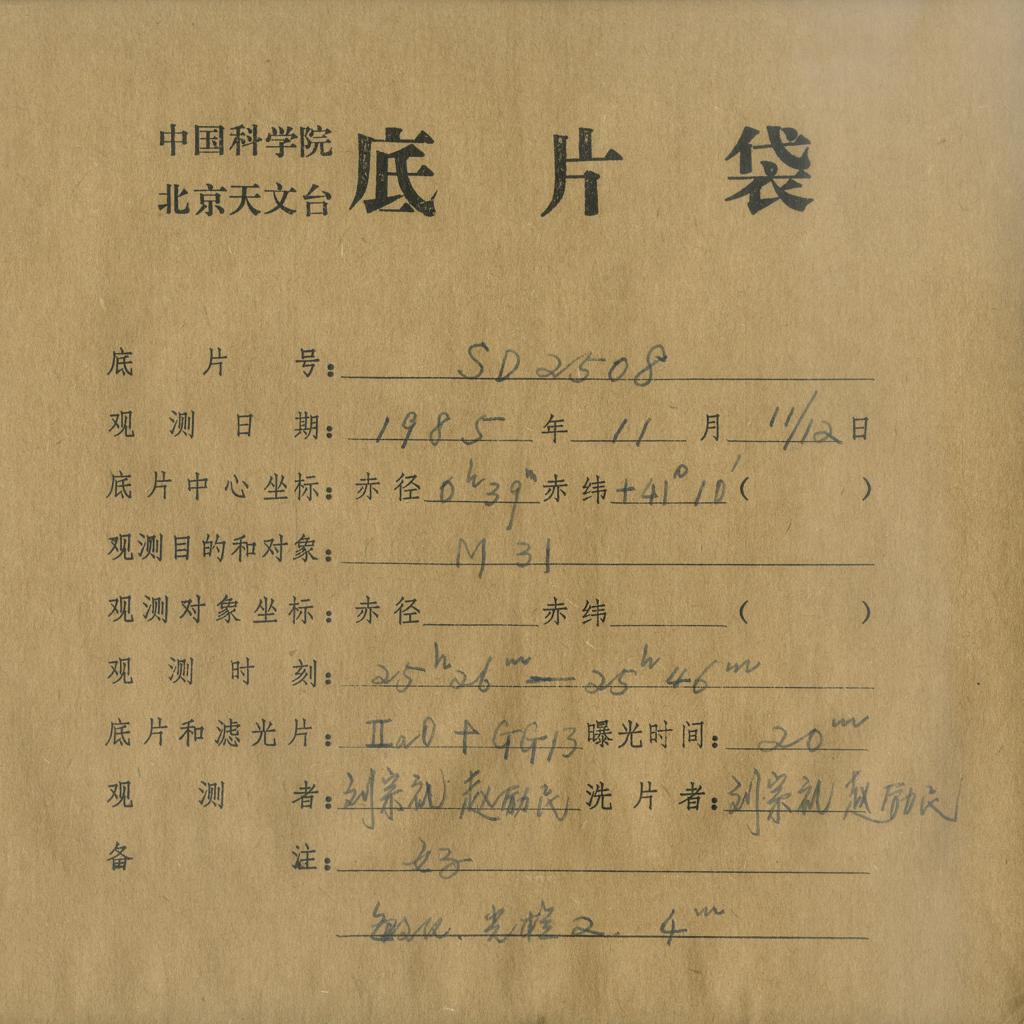 中国科学院
北京天文台 底片袋
底片号: SD2508
观测日期: 1985年11月11/12日
底片中心坐标: 赤径 0h39m 赤纬 +41°10′ ( )
观测目的和对象: M31
观测对象坐标: 赤径 赤纬 ( )
观测时刻: 25h26m—25h46m
底片和滤光片: IIaD+GG13 曝光时间: 20m
观测者: 刘宗礼 赵励民 洗片者: 刘宗礼 赵励民
备注: 好
敏化、光楷2. 4m